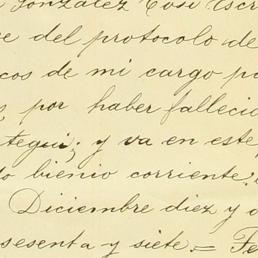 González Cosi Escri
e del protocolo de
cos de mi cargo po
por haber fallecid
tegui; y va en este
o bienio corriente.
Diciembre diez y o
sesenta y siete.= Fe